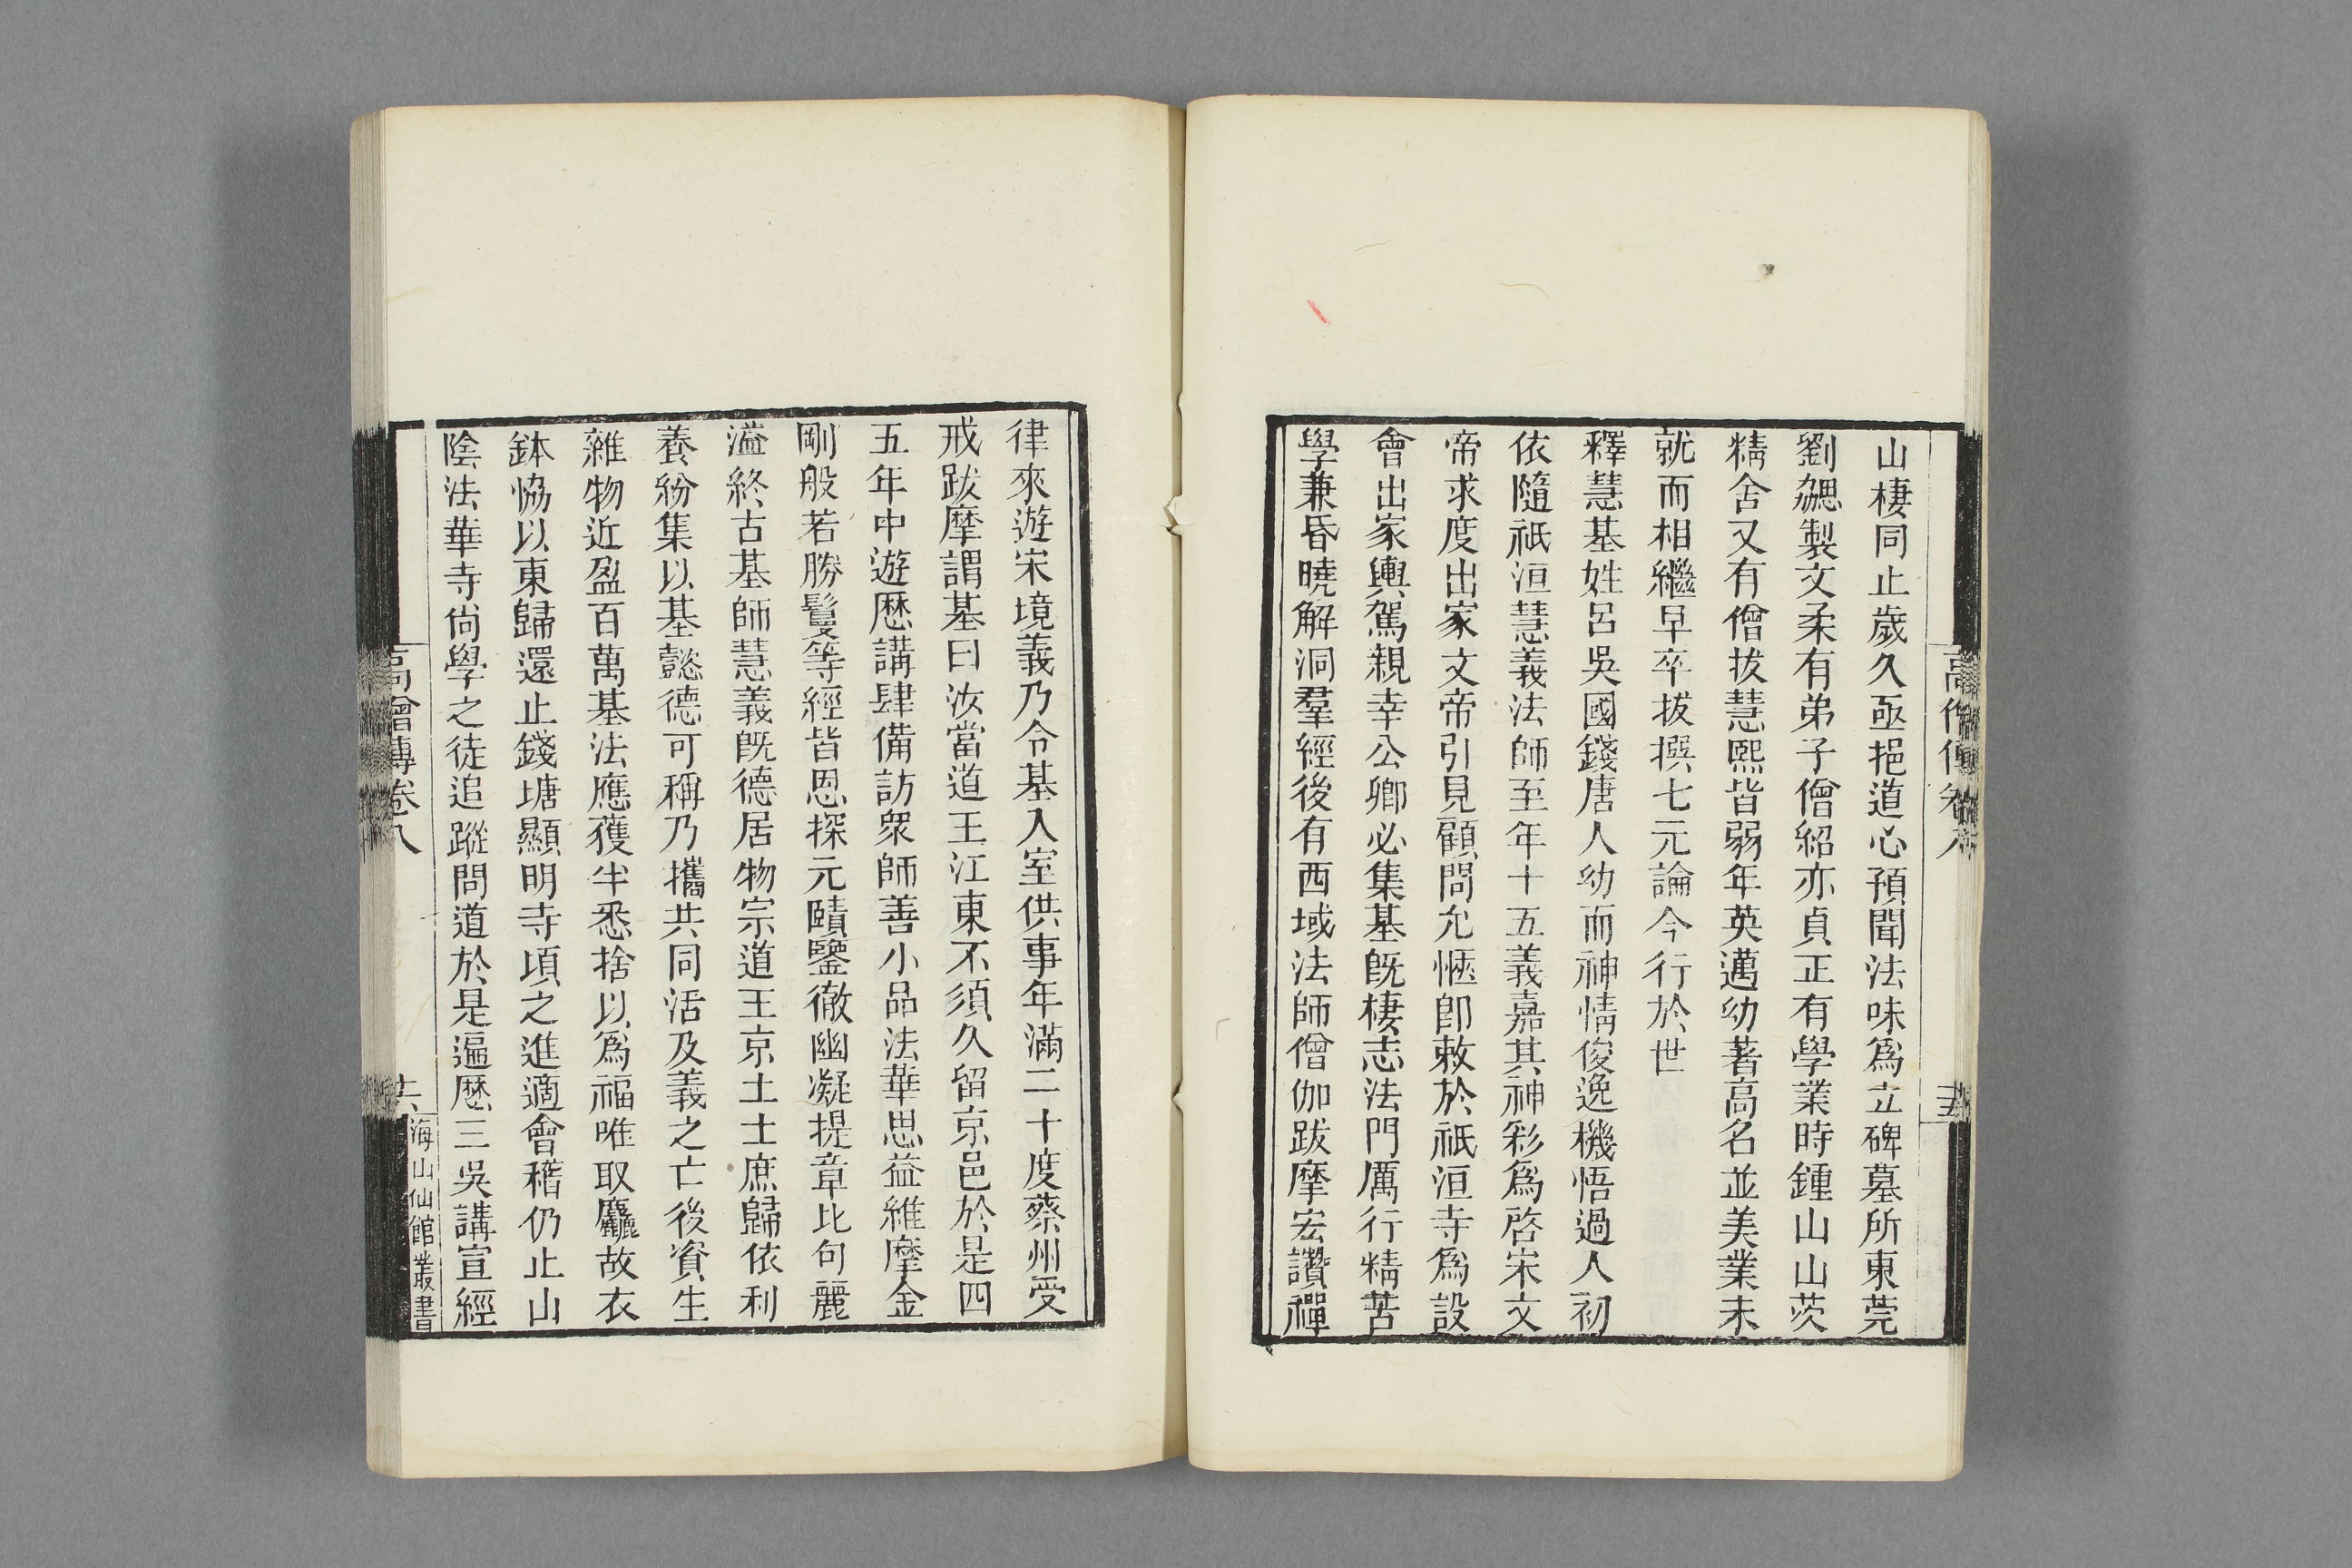 山棲同止歲久亟挹道心預聞法味爲立碑墓所東莞
劉勰製文柔有弟子僧紹亦貞正有學業時鍾山山茨
精舍又有僧拔慧熙皆弱年英邁幼著高名並美業未
就而相繼早卒拔撰七元論今行於世
釋慧基姓呂吳國錢唐人幼而神情俊逸機悟過人初
依隨祇洹慧義法師至年十五義嘉其神彩爲啓宋文
帝求度出家文帝引見顧問允愜卽敕於祇洹寺爲設
會出家輿駕親幸公卿必集基旣棲志法門厲行精苦
學兼昏曉解洞羣經後有西域法師僧伽跋摩宏讚禪
律來遊宋境義乃令基入室供事年滿二十度蔡州受
戒跋摩謂基曰汝當道王江東不須久留京邑於是四
五年中遊歷講肆備訪衆師善小品法華思益維摩金
剛般若勝鬘等經皆思探元賾鑒徹幽凝提章比句麗
溢終古基師慧義旣德居物宗道王京土士庶歸依利
養紛集以基懿德可稱乃攜共同活及義之亡後資生
雜物近盈百萬基法應獲半悉捨以爲福唯取麤故衣
鉢恊以東歸還止錢塘顯明寺頃之進適會稽仍止山
陰法華寺尙學之徒追蹤問道於是遍歷三吳講宣經
高僧傳卷八
六
海山仙館叢書